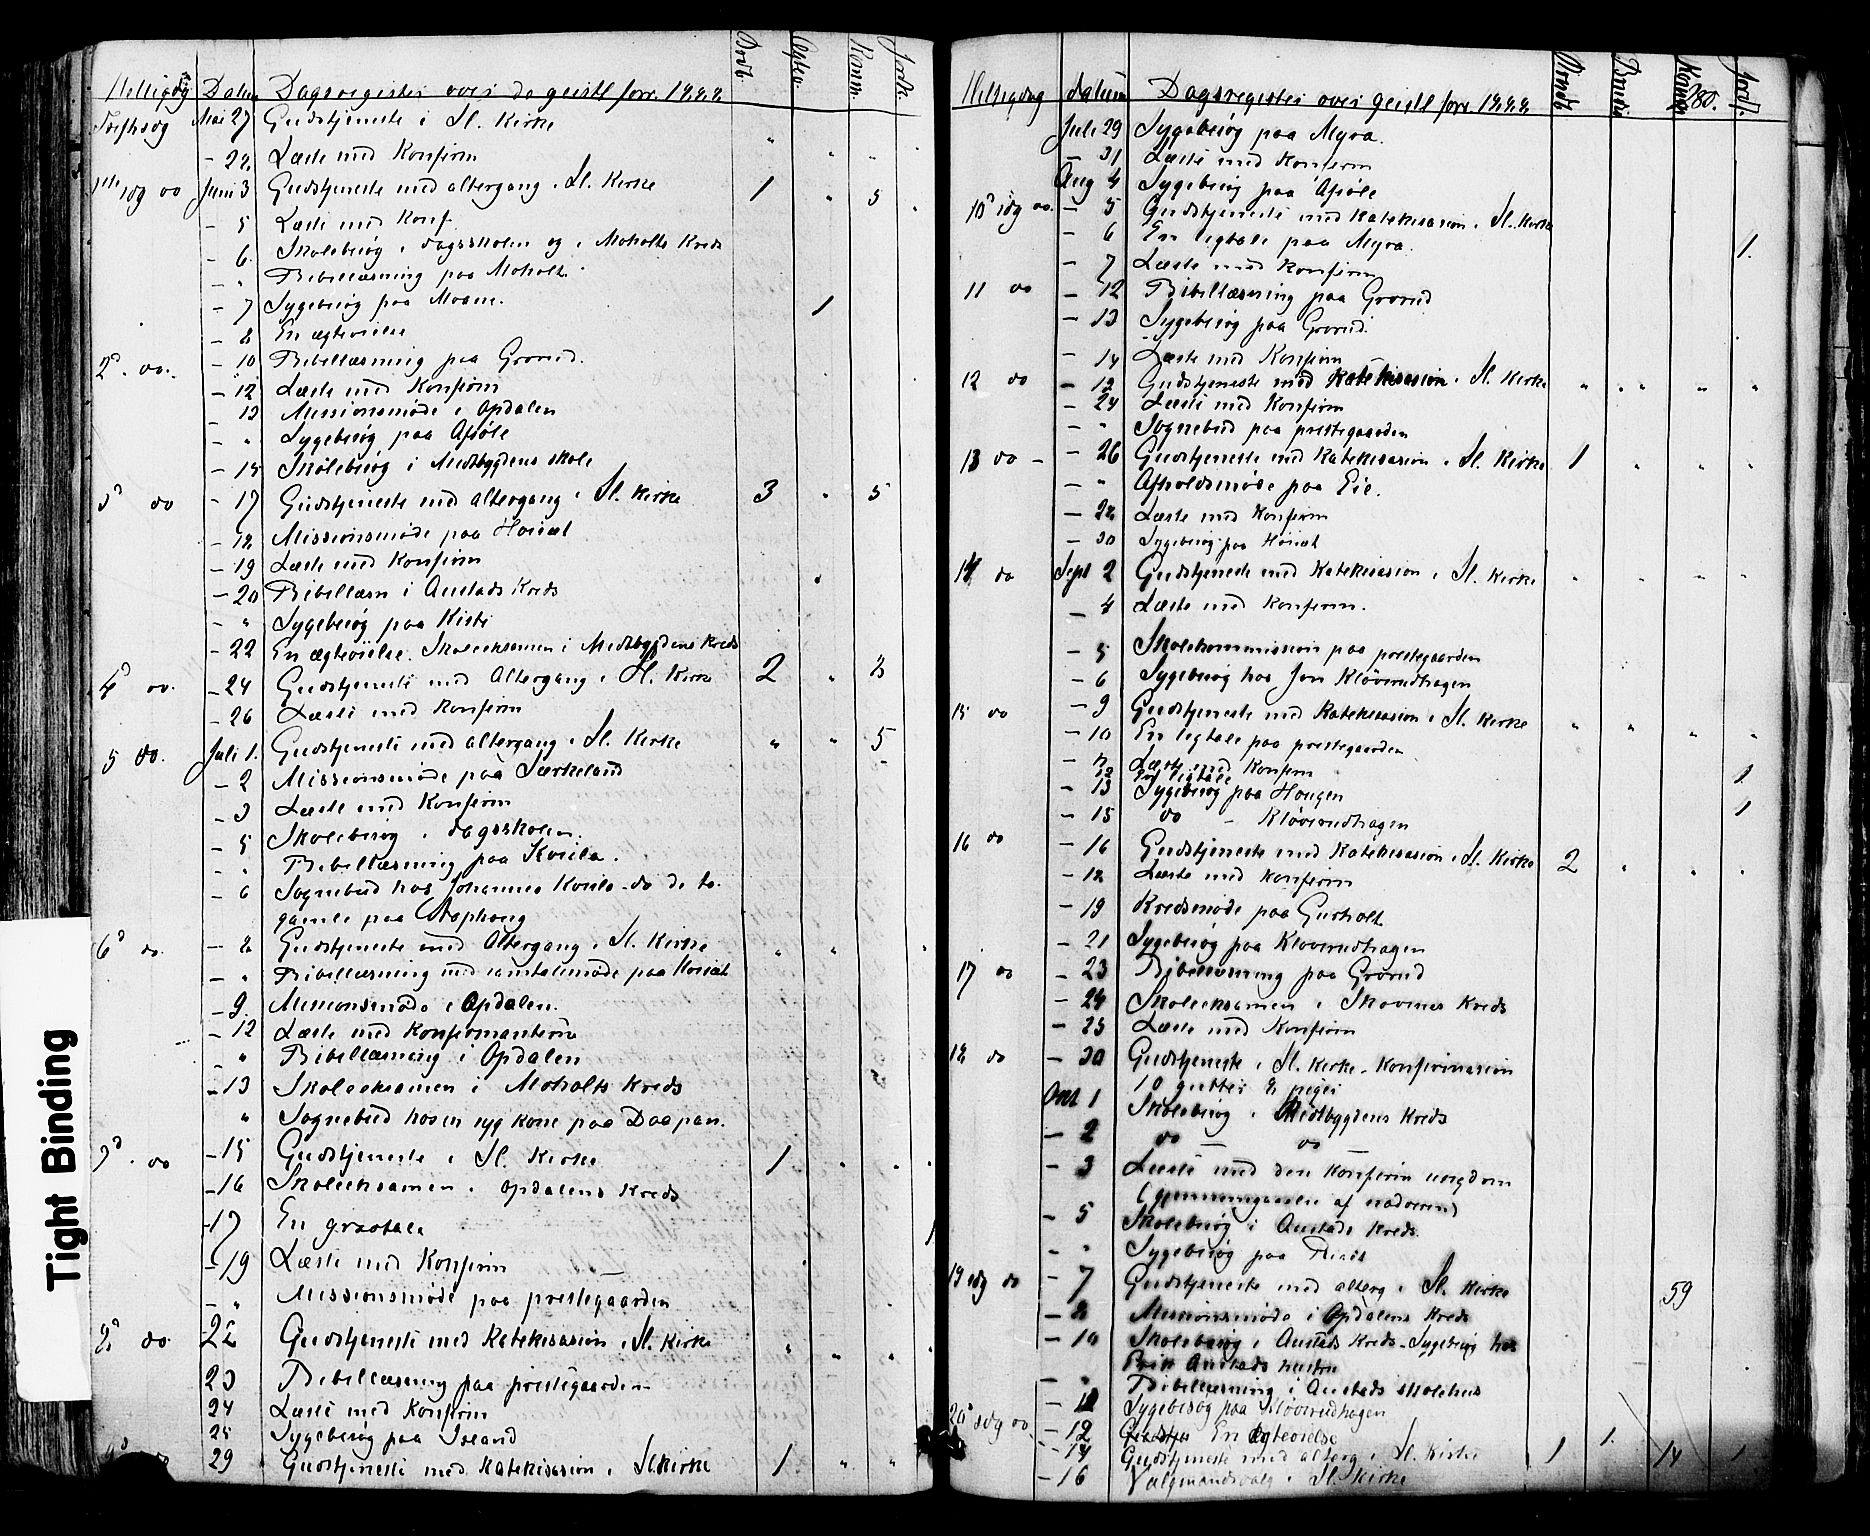 Helligdg Datum Dagsregister over de geistl forr. 1888 Døbt. Ægtev. Komm. Jordf.
Trefh.sdg Mai 27 Gudstjeneste i Sl. Kirke " " " "
- 28. Læste med Konfirm
1ste sdg do Juni 3 Gudstjeneste med altergang i Sl. Kirke 1 " 5 "
- 5 Læste med Konf.
- 6 Skolebesøg i dagsskolen og i Moholts Kreds
- " Bibellæsning paa Moholt.
- 7 Sygebesøg paa Moane. 1
- 8 En ægtevielse
2d do. - 10 Bibellæsning paa Grorud.
- 12 Læste med Konfirm
- 13 Missionsmøde i Opdalen
- " Sygebesøg paa Afsøle
- 15 Skolebesøg i Midtbygdens skole
3d do - 17 Gudstjeneste med altergang i Sl. Kirke 3 " 5
- 18 Missionsmøde paa Hoiset
- 19 Læste med Konfirm
- 20 Bibellæsn i Austads Kreds
- " Sygebesøg paa Kiste
- 22 En ægtevielse. Skoleeksamen i Midtbygdens Kreds
4d do. - 24 Gudstjeneste med Altergang i Sl. Kirke 2 " 3
- 26 Læste med Konfirm
5 do. Juli 1. Gudstjeneste med altergang i Sl. Kirke " " 5
- 2 Missionsmøde paa Særkeland
- 3 Læste med Konfirm
- 5 Skolebesøg i dagsskolen.
- " Bibellæsning paa Kvisla.
- 6 Sognebud hos Johannes Kvisla - do de to
gamle paa
6d do. - 8 Gudstjeneste med Altergang i Sl. Kirke " " "
- " Bibellæsning med samtalemøde paa Hoiset
- 9. Missionsmøde i Opdalen.
- 12 Læste med Konfirmanterne
- " Bibellæsning i Opdalen
- 13 Skoleeksamen i Moholts Kreds
" Sognebud hos en syg kone paa Daapan.
7d. do - 15 Gudstjeneste i Sl. Kirke 1 " " "
- 16 Skoleeksamen i Opdalens Kreds
- 17 En gravtale 1
- 19 Læste med Konfirm
- " Missionsmøde paa prestegaarden
8d do 22 Gudstjeneste med Katekisasion i Sl. Kirke " " " "
23 Bibellæsning paa prestegaarden
24 Læste med Konfirm
25 Sygebesøg paa Island
29 Gudstjeneste med Katekisasion i Sl. Kirke 1 " "
Helligdag datum Dagsregister over geistl forr 1888 Døbt Komm 280. Jordf.
Juli 29 Sygebesøg paa Myra.
- 31 Læste med Konfirm
Aug 4 Sygebesøg paa Afsøle
10d sdg do. - 5 Gudstjeneste med Katekisasion i Sl. Kirke
- 6 En ligtale paa Myra. 1.
- 7 Læste med Konfirm
11 do - 12 Bibellæsning paa Grorud
- 13 Sygebesøg paa Grorud.
- 14 Læste med Konfirm
12 do - 19 Gudstjeneste med Katekisasion i Sl. Kirke " " " "
- 24 Læste med Konfirm
- " Sognebud paa prestegaarden
13 do - - 26 Gudstjeneste med Katekisasion i Sl. Kirke 1 " " "
- " Afholdsmøde paa Eie.
- 28 Læste med Konfirm
- 30 Sygebesøg paa Høiset
14 do Sept 2 Gudstjeneste med Katekisasion i Sl. Kirke " " " "
- 4 Læste med Konfirm.
- 5 Skolekommission paa prestegaarden
- 6 Sygebesøg hos Jon Kløverudhagen
15 do - 9 Gudstjeneste med Katekisasion i Sl. Kirke " " " "
- 10 En ligtale paa prestegaarden
- 11 Læste med Konfirm
12 En ligtale 1
- 13 Sygebesøg paa Hougen
- 15 do - Kløverudhagen 1
16 do - 16 Gudstjeneste med Katekisasion i Sl. Kirke 2 " " "
- 18 Læste med Konfirm
- 19 Kredsmøde paa Gusholt
- 21 Sygebesøg paa Kløverudhagen
17 do - 23 Bibellæsning paa Grorud
- 24 Skoleeksamen i Skovenes Kreds
- 25 Læste med Konfirm
18 do - 30 Gudstjeneste i Sl. Kirke. Konfirmasion
10 gutter 8 piger
Okt 1 Skolebesøg i Midtbygdens Kreds
- 2 do - do
- 3 Læste med den Konfirm ungdom
(gjennemgaaelse af nadveren)
- 5 Skolebesøg i Austads Kreds.
- " Sygebesøg paa
19 sdg do - 7 Gudstjeneste med alterg i Sl. Kirke 59
- 8 Missionsmøde i Opdalens Kreds
- 10 Skolebesøg i Austads Kreds - Sygebesøg hos
Austads hustru
- " Bibellæsning i Austads skolehus
- 11 Sygebesøg paa Kløverudhagen
20d sdg do. - 12 En Ægtevielse 1.
- 14 Gudstjeneste med alterg i Sl. Kirke 1 14 1
- 16 Valgmandsvalg i Sl. Kirke
Tight Binding